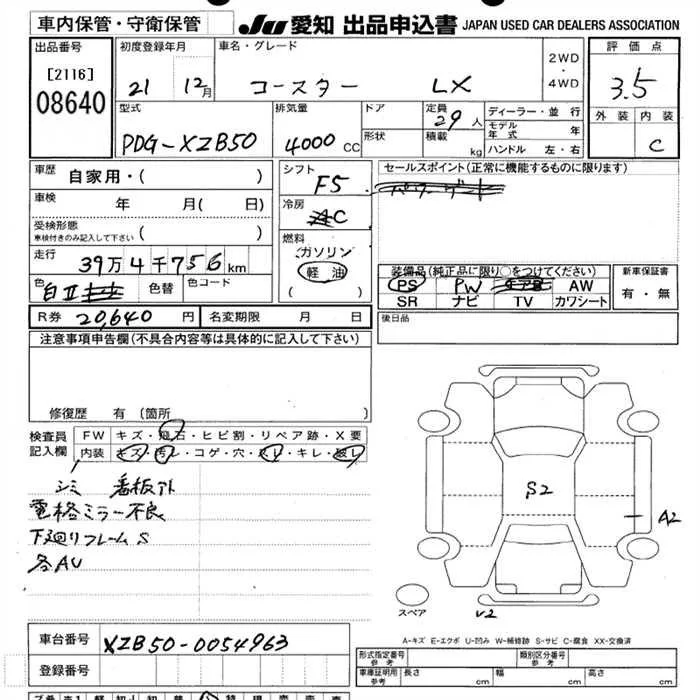 車内保管・守衛保管 JU 愛知 出品申込書 JAPAN USED CAR DEALERS ASSOCIATION
出品番号 初度登録年月 車名・グレード 2WD・4WD 評価点
[2116] 08640 21 12月 コースター LX 3.5
型式 排気量 ドア 定員 29人 ディーラー・並行 外装 内装
PDG-XZB50 4000cc 形状 積載 kg モデル年式 年 C
ハンドル 左・右
車歴 自家用・( ) シフト F5 セールスポイント(正常に機能するものに限ります)
車検 年 月( 日) 冷房 AC
受検形態 車検付きのみ記入して下さい ( )
燃料 ガソリン 軽油 ( )
走行 39万4千756km
装備品(純正品に限り○をつけてください) 新車保証書
色 白II 色替 色コード PS PW エアB AW 有・無
SR ナビ TV カワシート
R券 20,640円 名変期限 月 日 後日品
注意事項申告欄(不具合内容等は具体的に記入して下さい)
修復歴 有(箇所
検査員記入欄 FW キズ・飛石・ヒビ割・リペア跡・X要
内装 キズ・汚レ・コゲ・穴・スレ・キレ・破レ
シミ 看板外
電格ミラー不良
下廻りフレームS
各AU
S2
A2
スペア V2
A-キズ E-エクボ U-凹み W-補修跡 S-サビ C-腐食 XX-交換済
車台番号 XZB50-0054963
登録番号
形式指定番号 参考 類別区分番号 参考
車庫証明用 参考 長さ cm 幅 cm 高さ cm